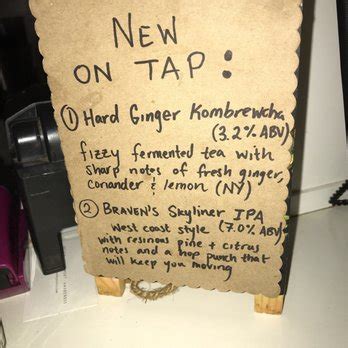 NEW
ON TAP:
① Hard Ginger Kombrewcha
(3.2% ABV)
fizzy fermented tea with
sharp notes of fresh ginger,
coriander & lemon (NY)
② BRAVEN'S Skyliner IPA
West coast style (7.0% ABV)
with resinous pine + citrus
notes and a hop punch that
will keep you moving